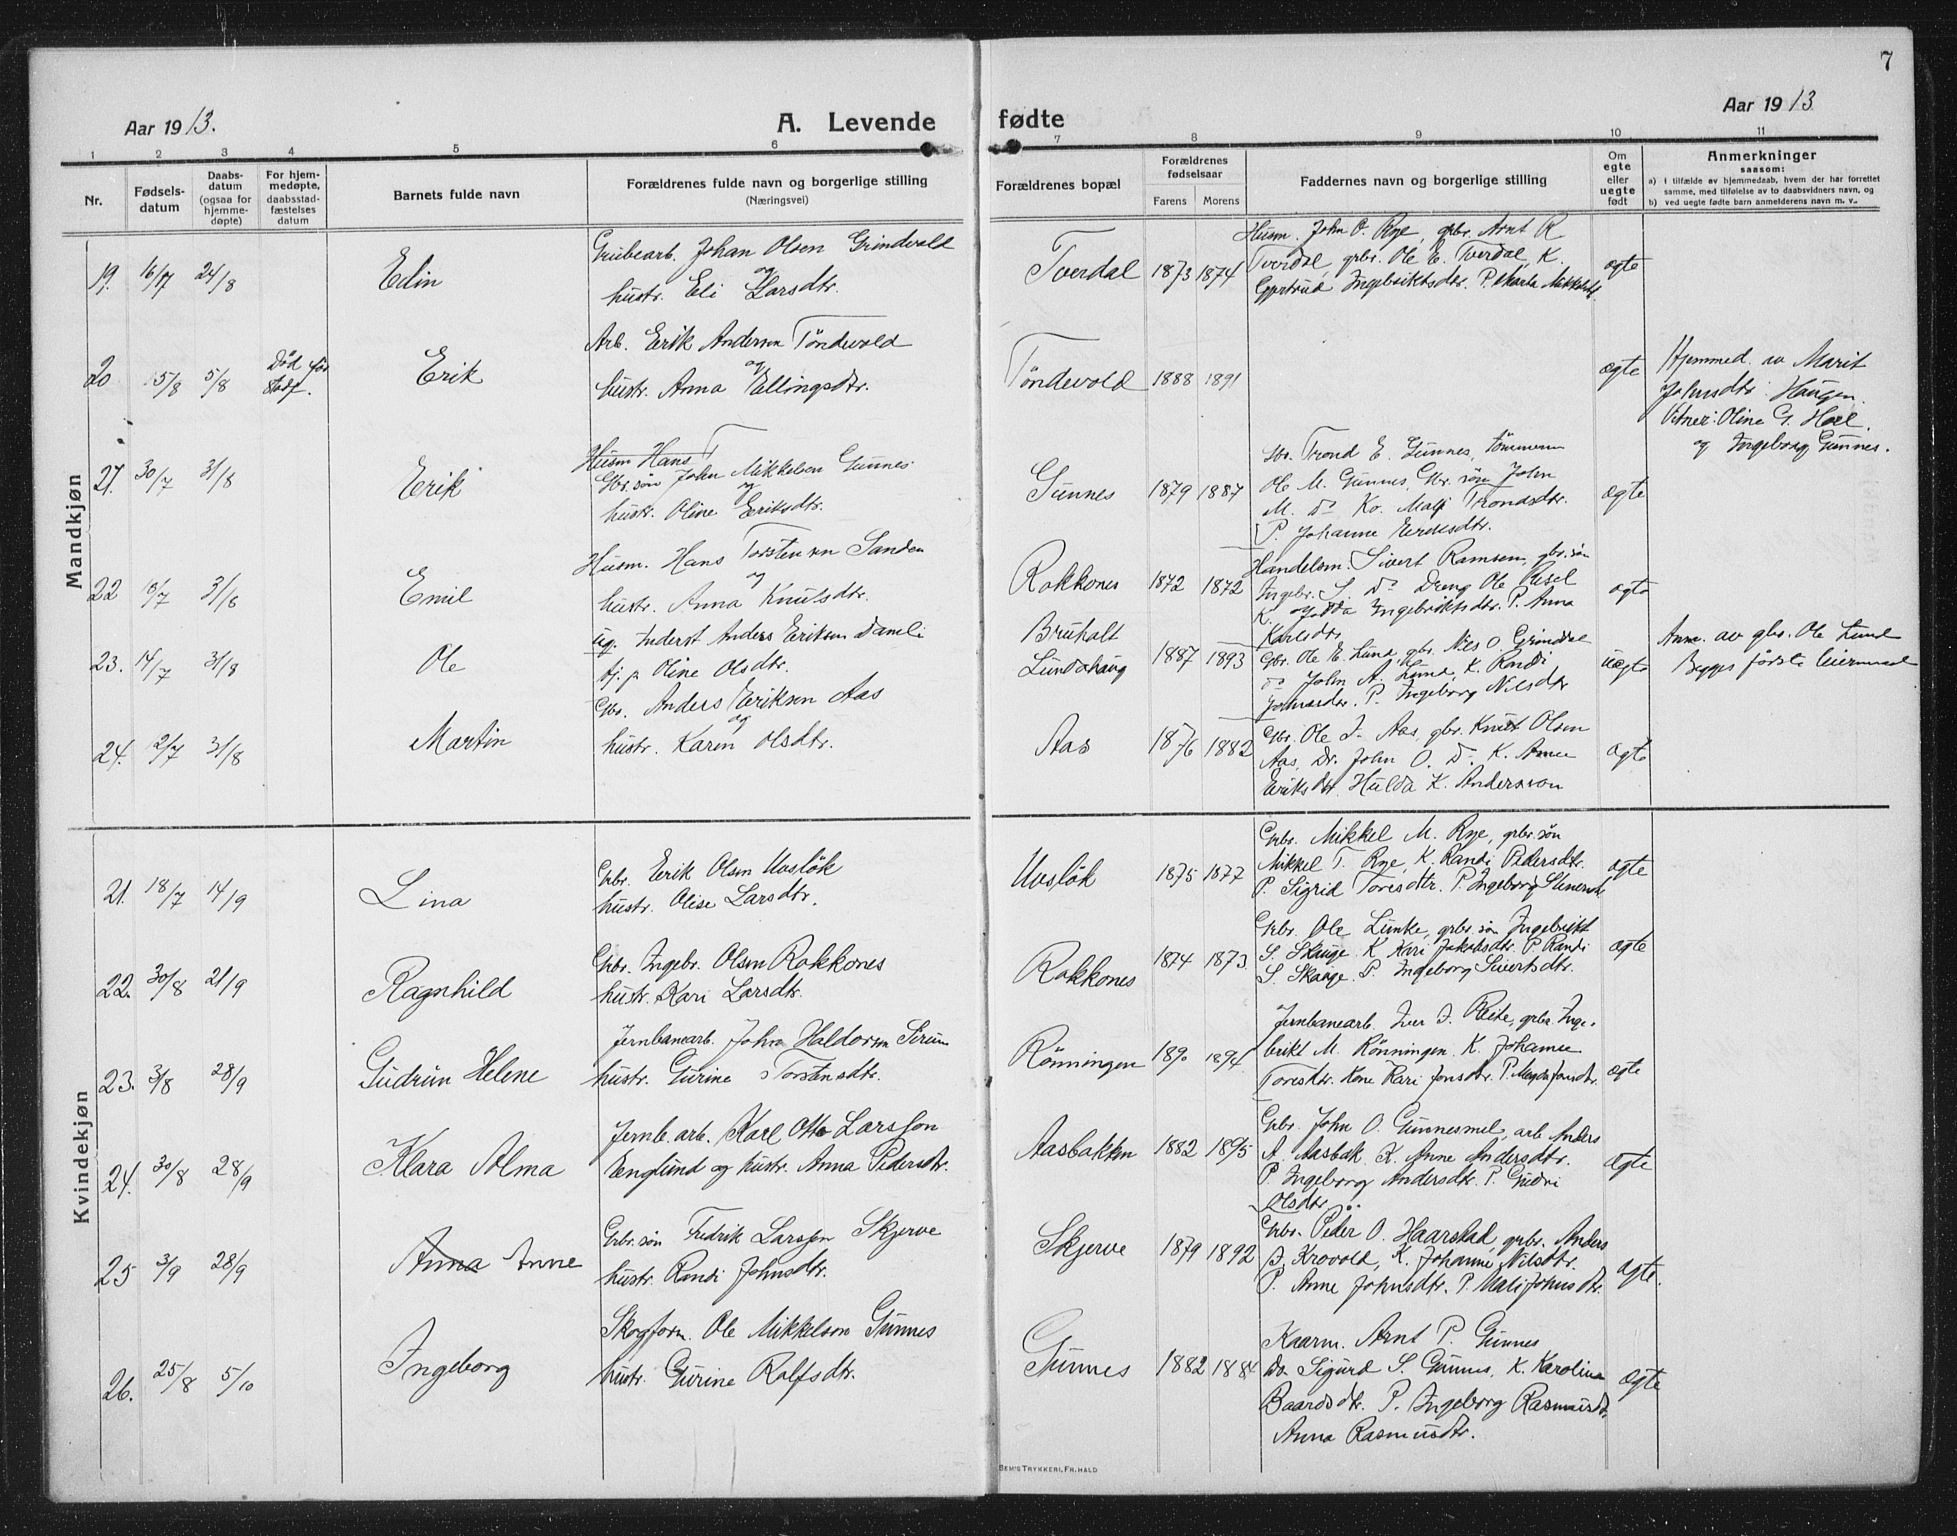 7
Aar 1913.
A. Levende
fødte
Aar 1913
1 2 3 4 5 6 7 8 9 10 11
Nr.
Fødsels-
datum
Daabs-
datum
(ogsaa for
hjemme-
døpte)
For hjem-
medøpte,
daabsstad-
fæstelses
datum
Barnets fulde navn
Forældrenes fulde navn og borgerlige stilling
(Næringsvei)
Forældrenes bopæl
Forældrenes
fødselsaar
Farens Morens
Faddernes navn og borgerlige stilling
Om
egte
eller
uegte
født
Anmerkninger
saasom:
a) i tilfælde av hjemmedaab, hvem der har forrettet
samme, med tilføielse av to daabsvidners navn, og
b) ved uegte fødte barn anmelderens navn m. v..
Mandkjøn
19. 16/7 24/8 Edin
Grubearb. Johan Olsen Grindvold
og
hustr. Eli Larsdtr.
Tverdal 1873 1874
Husm. John O. Rye, gbr. Arnt R
Tverdal, gbr. Ole E. Tverdal, K.
Gjertrud Ingebriktsdtr. P. Marta
ægte
20 15/8 5/8 Død før
stadf.
Erik
Arb. Erik Andersen Töndevold
og
hustr. Anna Ellingsdtr.
Töndevold 1888 1891
ægte
Hjemmed. av Marit
Johnsdtr. Haugen.
Vitner: Oline G. Hoel.
og Ingeborg Gunnes.
21. 30/7 31/8 Erik
Husm Hans T
Gbr. søn John Mikkelsen Gunnes
og
hustr. Oline Eriksdtr.
Gunnes 1879 1887
Gbr. Trond E. Gunnes, tömmerm
Ole M. Gunnes, Gbr. søn John
M. do Ko. Mali Trondsdtr.
P. Johanne Eriksdtr.
ægte
22 /7 31/8 Emil
Husm. Hans Torstensen Sanden
og
hustr. Anna Knutsdtr.
Rokkones 1872 1872
Handelsm. Sivert Ramsem, gbr. søn
Ingebr. S. do Dreng Ole
K. Ingebriktsdtr. P. Anna
Karlsdtr.
ægte
23. 14/7 31/8 Ole
ug. Inderst Anders Eriksen Damli
tj. p. Oline Olsdtr.
Bruholt
Lundshaug
1887 1893
Gbr. Ole E. Lund, gbr. Nils O. Grindal
do John A. Lund, K. Randi
P. Ingeborg Nilsdtr
uægte
Anm. av gbr. Ole Lund
Begges første leiermaal
24. 2/7 31/8 Martin
Gbr. Anders Eriksen Aas
og
hustr. Karen Olsdtr.
Aas 1876 1882
Gbr. Ole J. Aas, gbr. Knut Olsen
Aas, Dr. John O. do K. Anne
Eriksdtr Hulda K. Andersson
ægte
Kvindekjøn
21. 18/7 14/9 Lina
Gbr. Erik Olsen Uvslök
hustr. Olise Larsdtr.
Uvslök 1875 1877
Gbr. Mikkel M. Rye, gbr. søn
Mikkel T. Rye, K. Randi Pedersdtr.
P. Sigrid Toresdtr. P. Ingeborg
ægte
22. 30/8 21/9 Ragnhild
Gbr. Ingebr. Olsen Rokkones
hustr. Kari Larsdtr.
Rokkones 1874 1873
Gbr. Ole Limke, gbr. søn Ingebrikt
S. Skauge. K. Kari Jakobsdtr. P. Randi
S. Skauge. P. Ingeborg Sivertsdtr.
ægte
23. 3/8 28/9 Gudrun Helene
Jernbanearb. John Haldorsen Sirum
hustr. Gurine Torstensdtr.
Rönningen 1890 1894
Jernbanearb. Iver J. Reite, gbr. Inge-
brikt M. Rönningen. K. Johanne
Toresdtr. Kone Kari Jonsdtr. P. Magda Jonsdtr.
ægte
24. 30/8 28/9 Klara Alma
Jernb. arb. Karl Otto Larsson
Englund og hustr. Anna Pedersdtr.
Aasbakken 1882 1895
Gbr. John O. Gunnesmel, arb. Anders
A. Aasbak. K. Anne Andersdtr.
P. Ingeborg Andersdtr. P. Gudri
Olsdtr.
ægte
25 3/9 28/9 Anna Anne
Gbr. søn Fredrik Larssen Skjerve
hustr. Randi Johnsdtr.
Skjerve 1879 1892
Gbr. Peder O. Haarstad, gbr. Anders
J. Krovold, K. Johanne Nilsdtr.
P. Anne Johnsdtr. P. Mali Johnsdtr.
ægte.
26. 25/8 5/10 Ingeborg
Skogform. Ole Mikkelsen Gunnes
hustr. Gurine Rolfsdtr.
Gunnes 1882 1884
Kaarm. Arnt P. Gunnes
Do. Sigurd S. Gunnes, K. Karolina
Baardsdtr. P. Ingeborg Rasmusdtr.
Anna Rasmusdtr.
ægte
SEM'S TRYKKERI, FR. HALD